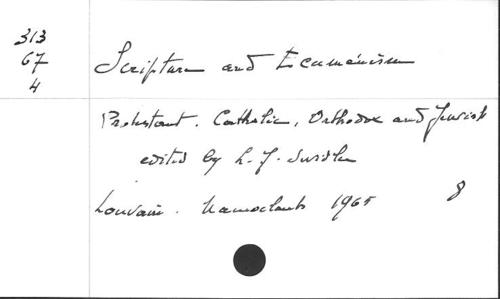 313
67
4
Scripture and Ecumenism
Protestant. Catholic, Orthodox and Jewish
edited by L. J. Swidler
Louvain. Nauwelaerts 1965 8